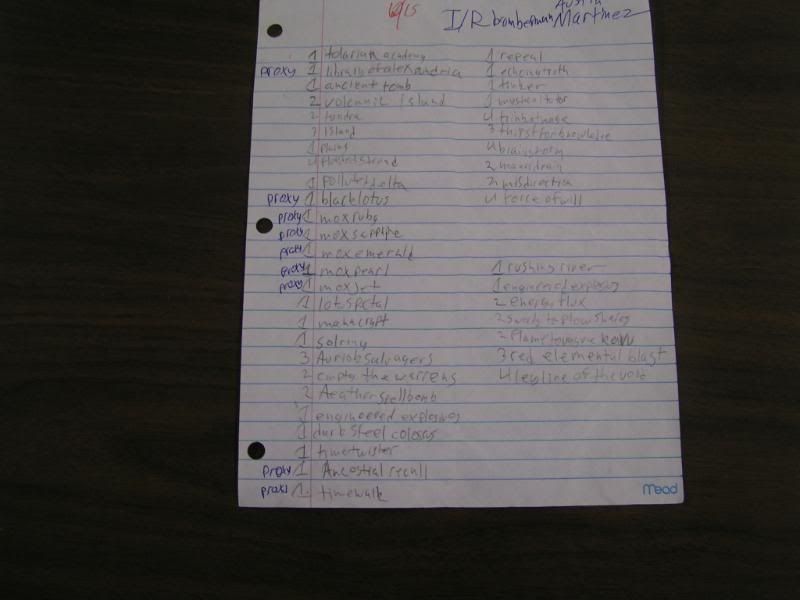 6/15
I/R bomberman Austin Martinez
1 tolarian academy
proxy 1 library of alexandria
1 ancient tomb
2 volcanic island
2 tundra
2 island
1 plains
4 flooded strand
1 polluted delta
proxy 1 black lotus
proxy 1 mox ruby
proxy 1 mox sapphire
proxy 1 mox emerald
proxy 1 mox pearl
proxy 1 mox jet
1 lotspetal
1 manacrypt
1 solring
3 Auriok salvagers
2 empty the warrens
2 Aeather spellbomb
1 engineered explosives
1 dark steel colossus
1 timetwister
proxy 1 Ancestral recall
proxi 1 timewalk
1 repeal
1 echoing truth
1 tinker
1 mystical tutor
4 trinket mage
3 thirst for knowledge
4 brainstorm
2 mana drain
2 misdirection
4 force of will
1 rushing river
1 engineered explosives
2 energy flux
2 swords to plow shares
2 Flametongue kavu
3 red elemental blast
4 leyline of the void
Mead